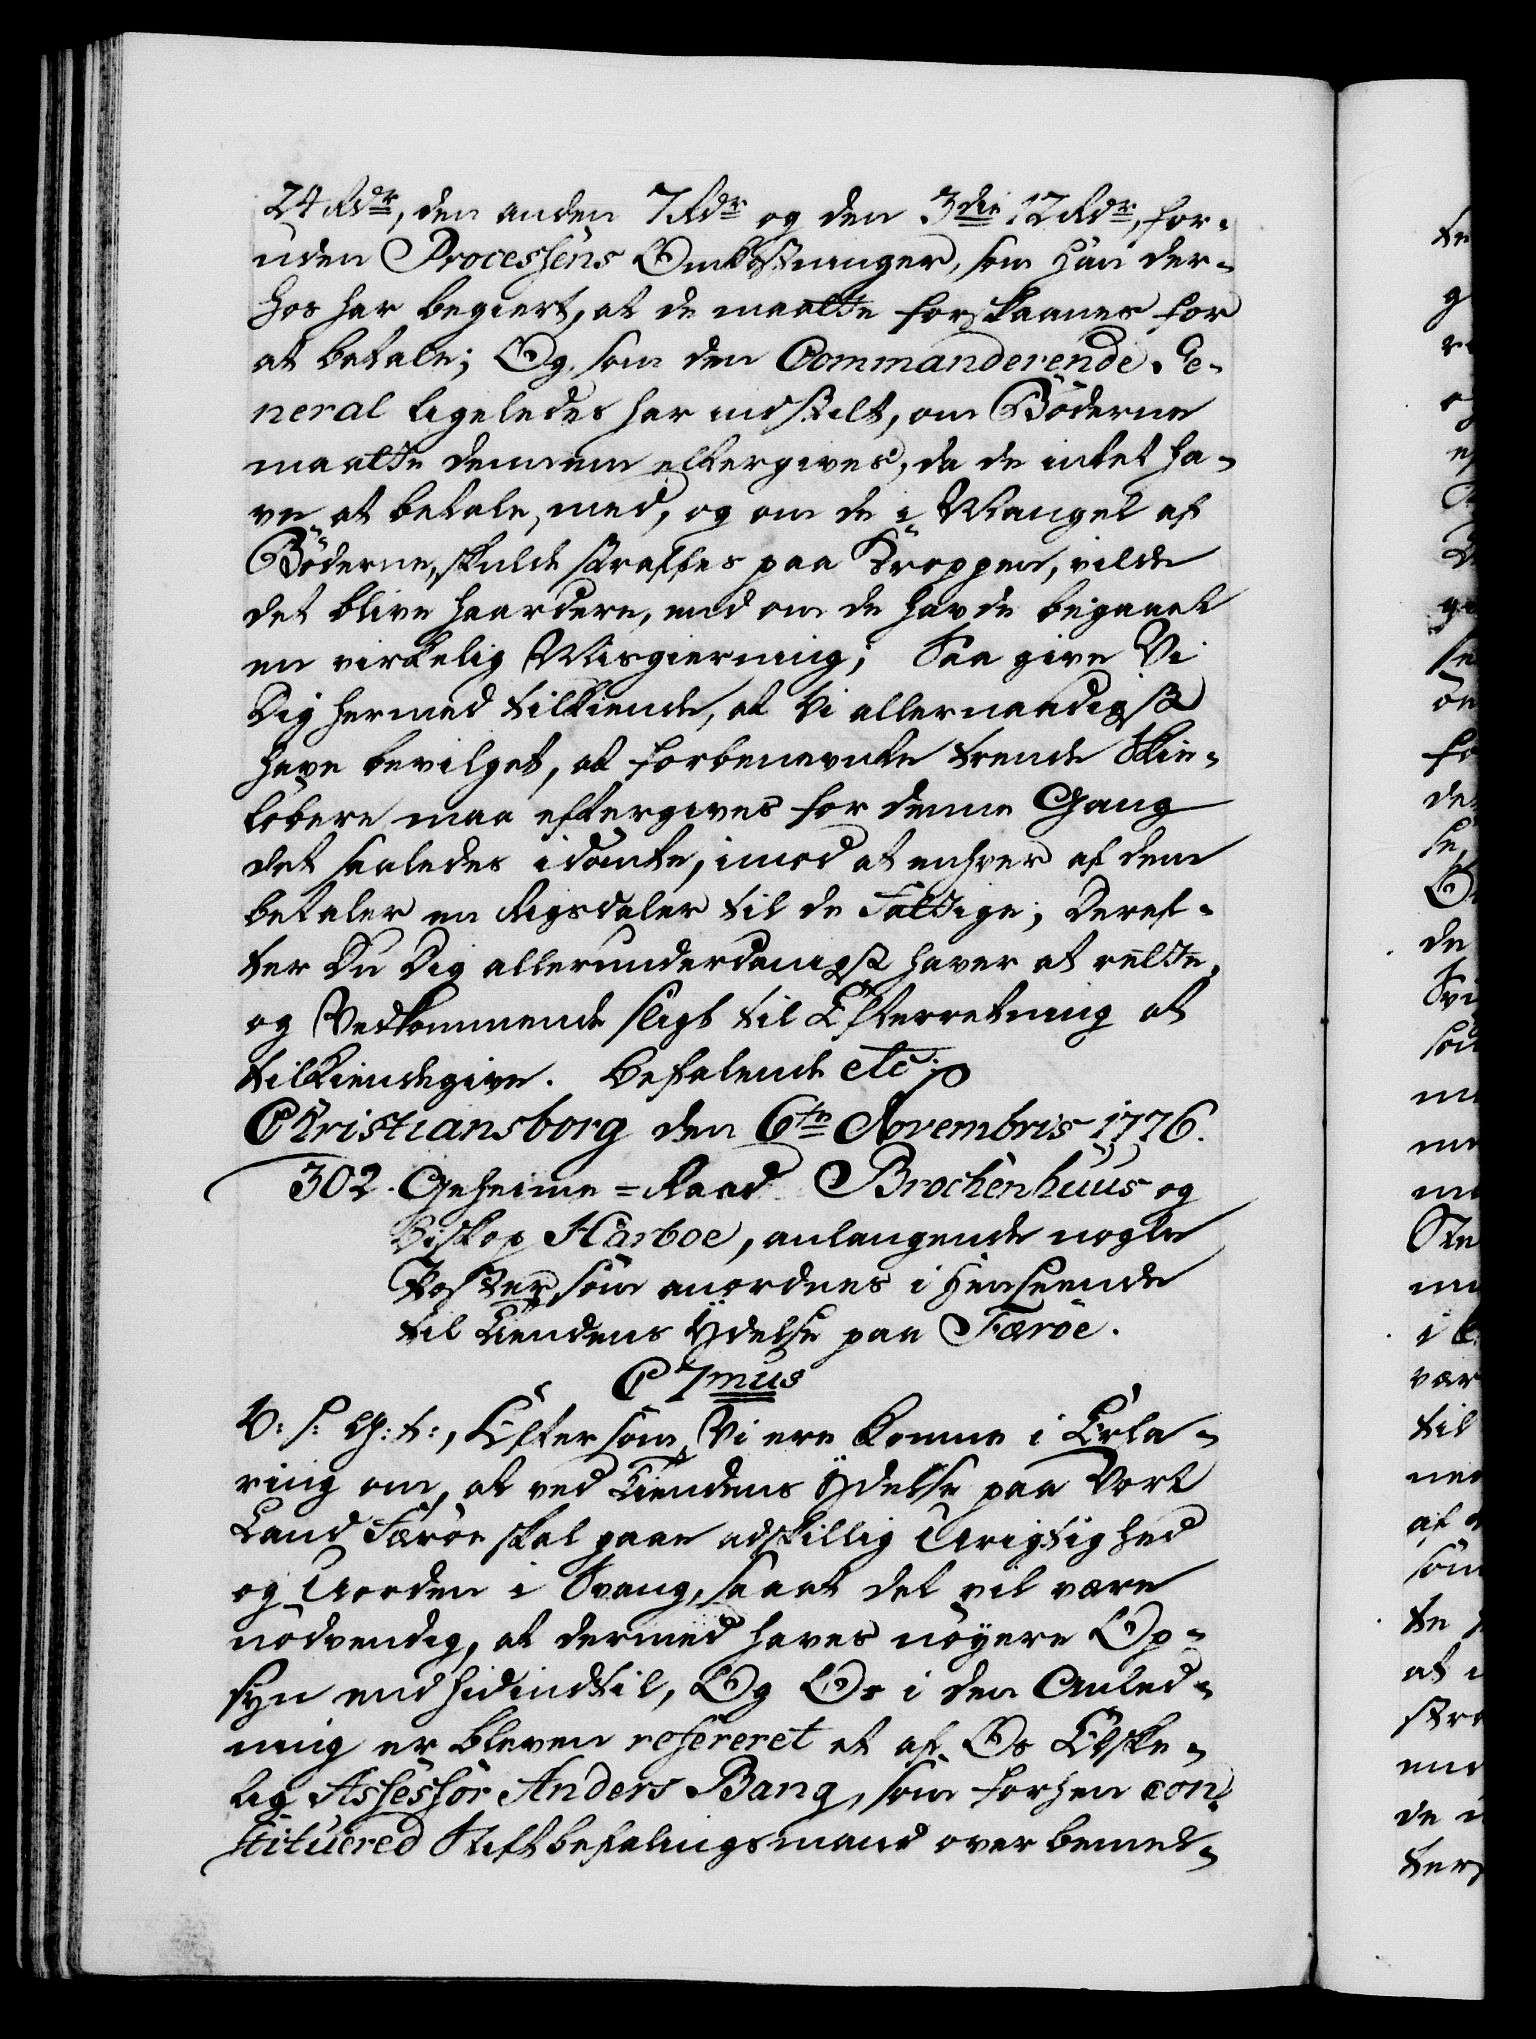 24 Rdr, den anden 7 Rdr og den 3die 12 Rdr, for-
uden Processens Omkostninger, som han der-
hos har begiert, at de maatte forskaanes for
at betale; Og som den Commanderende Ge-
neral ligeledes har indstilt, om Böderne
maatte dennem eftergives, da de intet ha-
ve at betale med, og om de i Mangel af
Böderne, skulde straffes paa Kroppen, vilde
det blive haardere, end om de havde begaaet
en virkelig Misgierning; Saa give Vi
Dig hermed tilkiende, at Vi allernaadigst
have bevilget, at forbenevnte trende Skie-
löbere maa eftergives for denne Gang
det saaledes idömte, imod at enhver af dem
betaler en Rigsdaler til de Fattige; Deref-
ter Du Dig allerunderdanigst haver at rette,
og Vedkommende sligt til Efterretning at
tilkiendegive. Befalende etc:
Christiansborg den 6te Novembris 1776.
302. Geheime-Raad Brockenhuus og
Biskop Harboe, anlangende nogle
Poster, som anordnes i Henseende
til Tiendens Ydelse paa Færöe.
C 7mus
V: S: G: t:, Eftersom Vi ere komne i Erfa-
ring om, at ved Tiendens Ydelse paa Vort
Land Færöe skal gaae adskillig Urigtighed
og Uorden i Svang, saa at det vil være
nödvendig, at dermed haves nöyere Op-
syn end hidindtil, Og Os i den Anled-
ning er bleven refereret et af Os Elske-
lig Assessor Anders Bang, som forhen con-
stituered Stiftbefalingsmand over bemel-